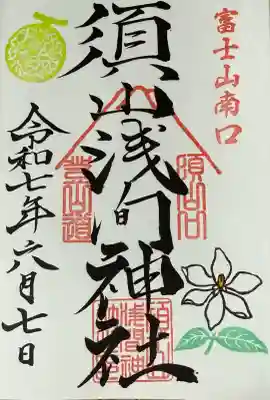 富士山南口
須山浅間神社
須山口
登山道
令和七年六月七日